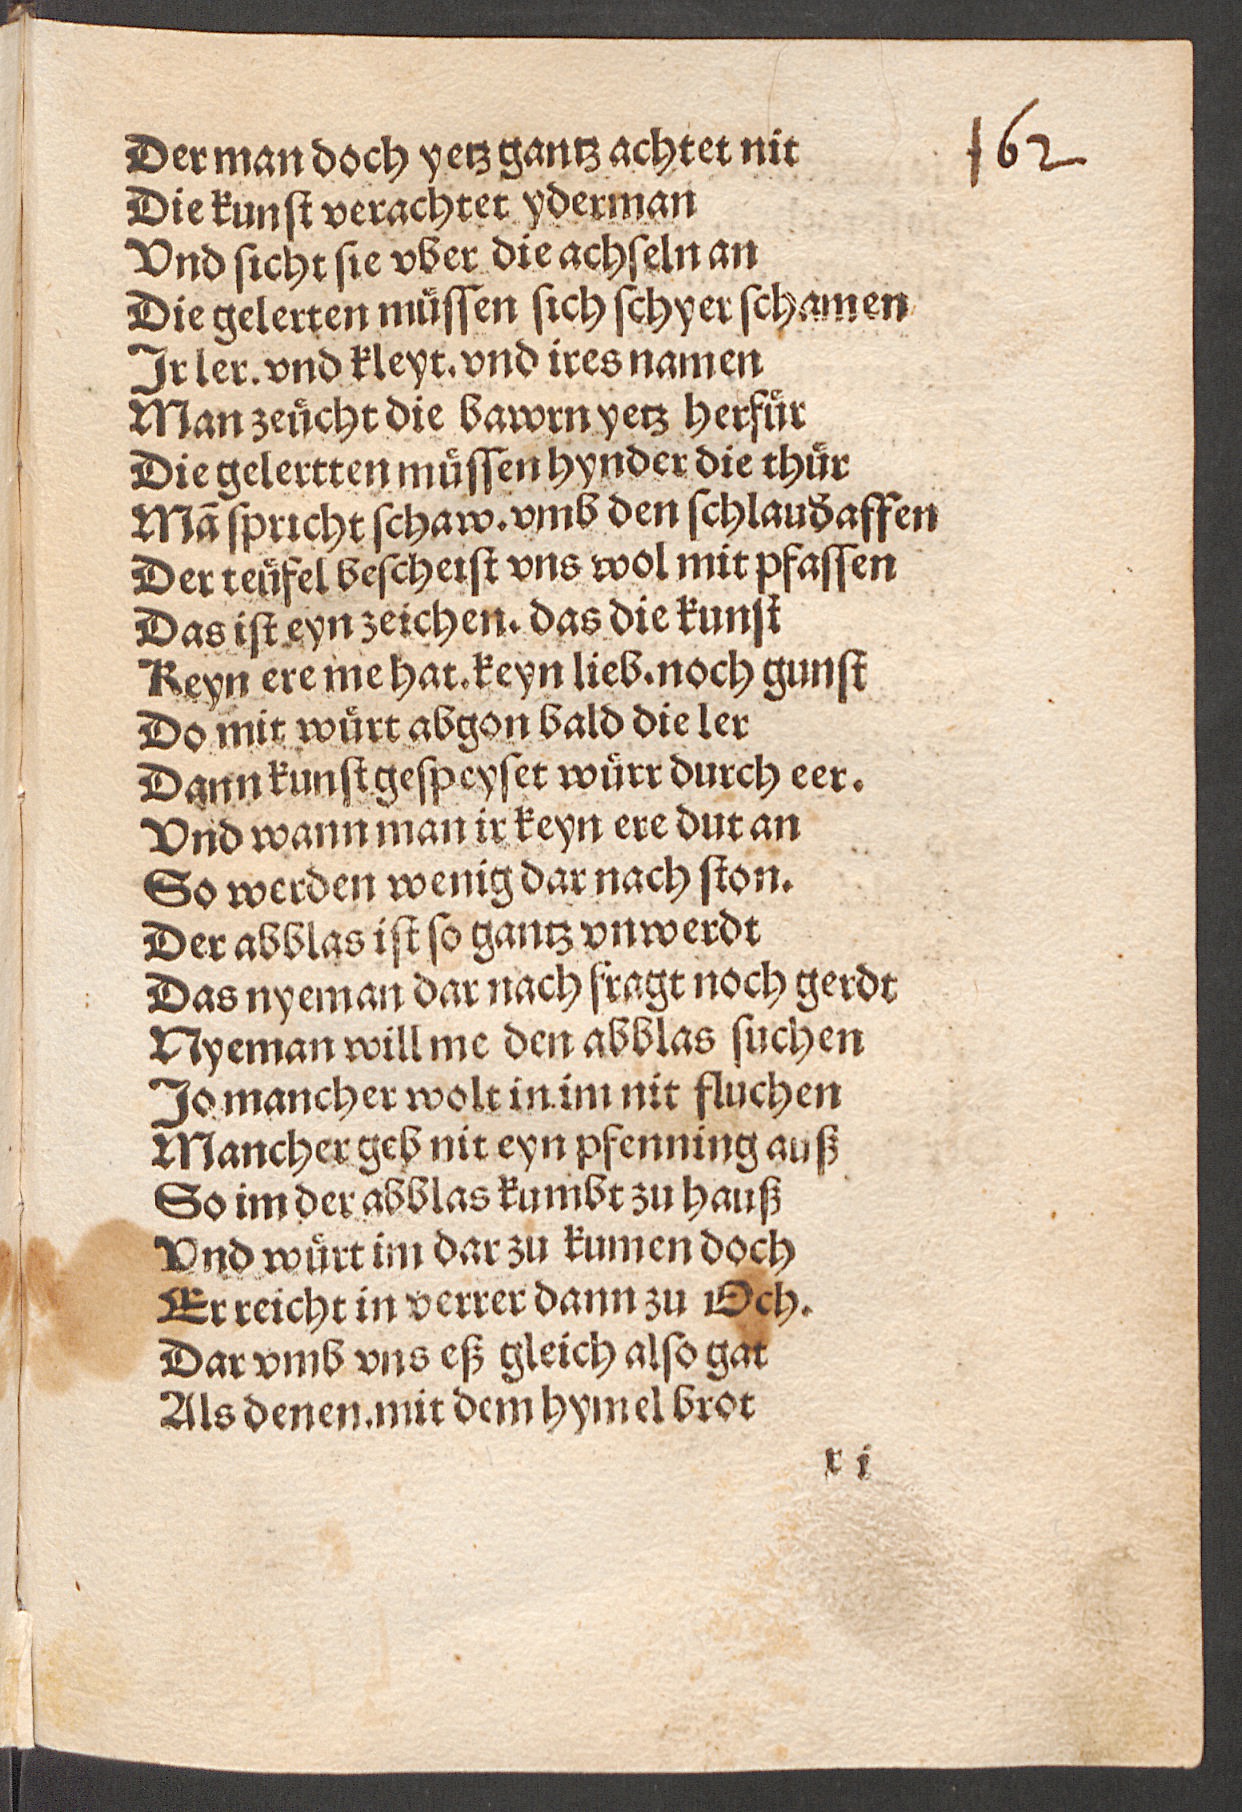 162
Der man doch yetz gantz achtet nit
Die kunſt verachtet yderman
Vnd ſicht ſie vber die achſeln an
Die gelerten muͤſſen ſich ſchyer ſchamen
Jr ler. vnd kleyt. vnd ires namen
Man zeuͤcht die bawrn yetz herfuͤr
Die gelertten muͤſſen hynder die thuͤr
Mā ſpricht ſchaw. vmb den ſchlaudaffen
Der teuͤfel beſcheiſt vns wol mit pfaffen
Das iſt eyn zeichen. das die kunſt
Keyn ere me hat. keyn lieb. noch gunſt
Do mit wuͤrt abgon bald die ler
Dann kunſt geſpeyſet wuͤrr durch eer.
Vnd wann man ir keyn ere dut an
So werden wenig dar nach ſton.
Der abblas iſt ſo gantz vnwerdt
Das nyeman dar nach fragt noch gerdt
Nyeman will me den abblas ſuchen
Jo mancher wolt in im nit fluchen
Mancher geb nit eyn pfenning auß
So im der abblas kumbt zu hauß
Vnd wuͤrt im dar zu kumen doch
Er reicht in verrer dann zu Och.
Dar vmb vns eß gleich alſo gat
Als denen. mit dem hymel brot
x i